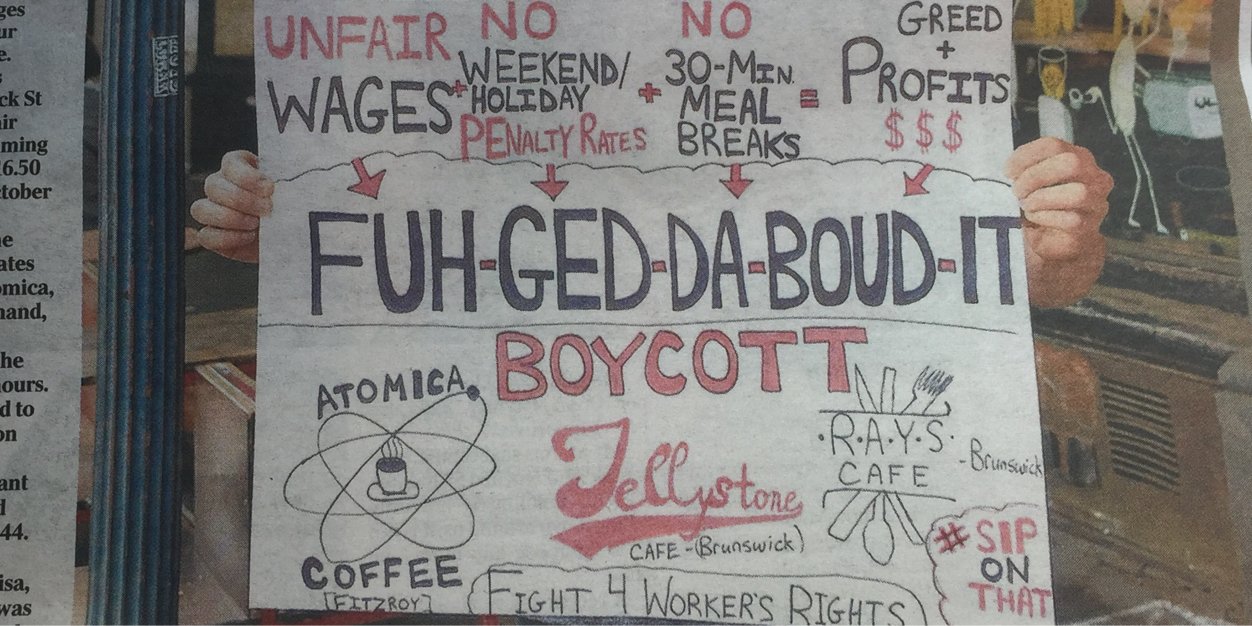 ges
ur
e.
ck St
air
ming
16.50
ctober
ne
ates
omica,
hand,
he
hours.
d to
on
ant
d
44.
isa,
was
UNFAIR
WAGES
+
NO
WEEKEND/
HOLIDAY
PENALTY RATES
+
NO
30-MIN.
MEAL
BREAKS
=
GREED
+
PROFITS
$$$
FUH-GED-DA-BOUD-IT
BOYCOTT
ATOMICA
COFFEE
[FITZROY]
Jellystone
CAFE-(Brunswick)
·R·A·Y·S·
CAFE
-Brunswick
FIGHT 4 WORKER'S RIGHTS
#SIP
ON
THAT